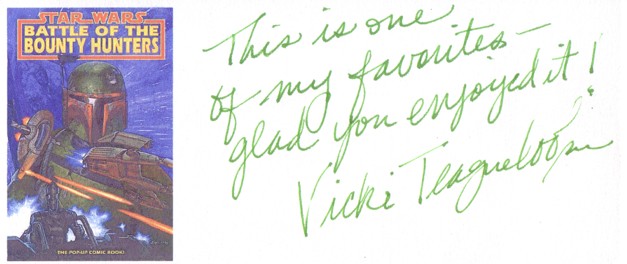 STAR WARS
BATTLE OF THE
BOUNTY HUNTERS
THE POP-UP COMIC BOOK!
This is one
of my favorites –
glad you enjoyed it!
Vicki